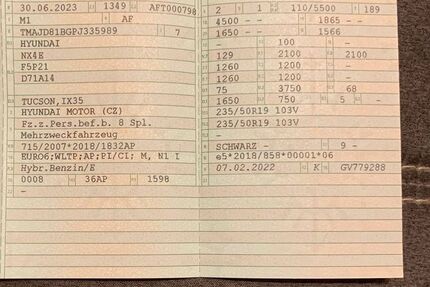 30.06.2023 1349 AFT000798
M1 AF
TMAJD81BGPJ335989 7
HYUNDAI
NX4E
F5P21
D71A14
TUCSON,IX35
HYUNDAI MOTOR (CZ)
Fz.z.Pers.bef.b. 8 Spl.
Mehrzweckfahrzeug
715/2007*2018/1832AP
EURO6;WLTP;AP;PI/CI; M, N1 I
Hybr.Benzin/E
0008 36AP 1598
–
2 1 110/5500 189
4500 - - 1865 - -
1650 - - 1566
- 100 -
129 2100 2100
1260 1200 -
1260 1200 -
75 3750 68
1650 750 5 -
235/50R19 103V
235/50R19 103V
-
-
SCHWARZ - 9 -
e5*2018/858*00001*06
07.02.2022 K GV779288
–